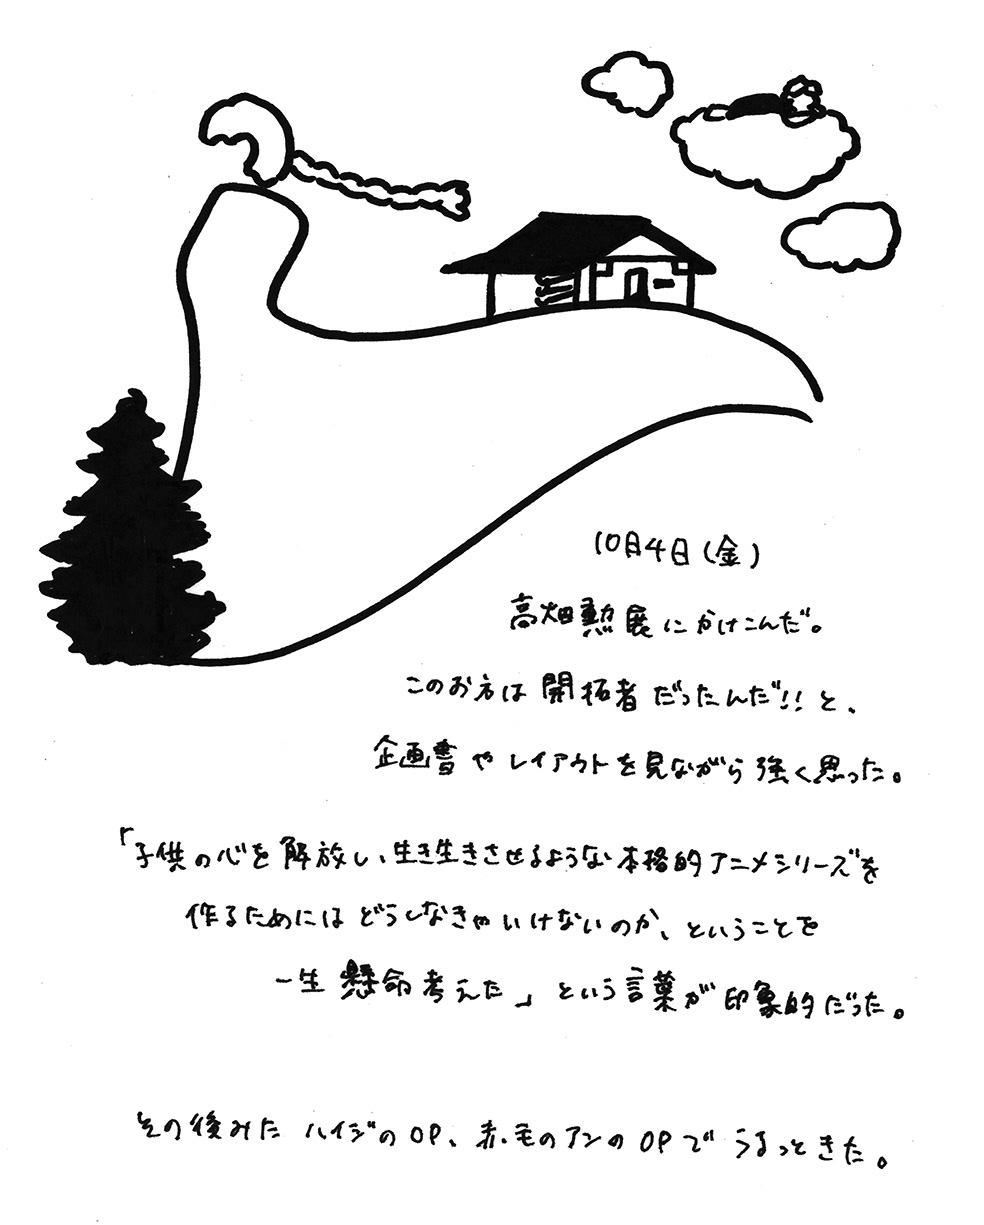 10月4日(金)
高畑勲展にかけこんだ。
このお方は開拓者だったんだ!!と、
企画書やレイアウトを見ながら強く思った。
「子供の心を解放し、生き生きさせるような本格的アニメシリーズを
作るためにはどうしなきゃいけないのか、ということを
一生懸命考えた」という言葉が印象的だった。
その後みたハイジのOP、赤毛のアンのOPでうるっときた。